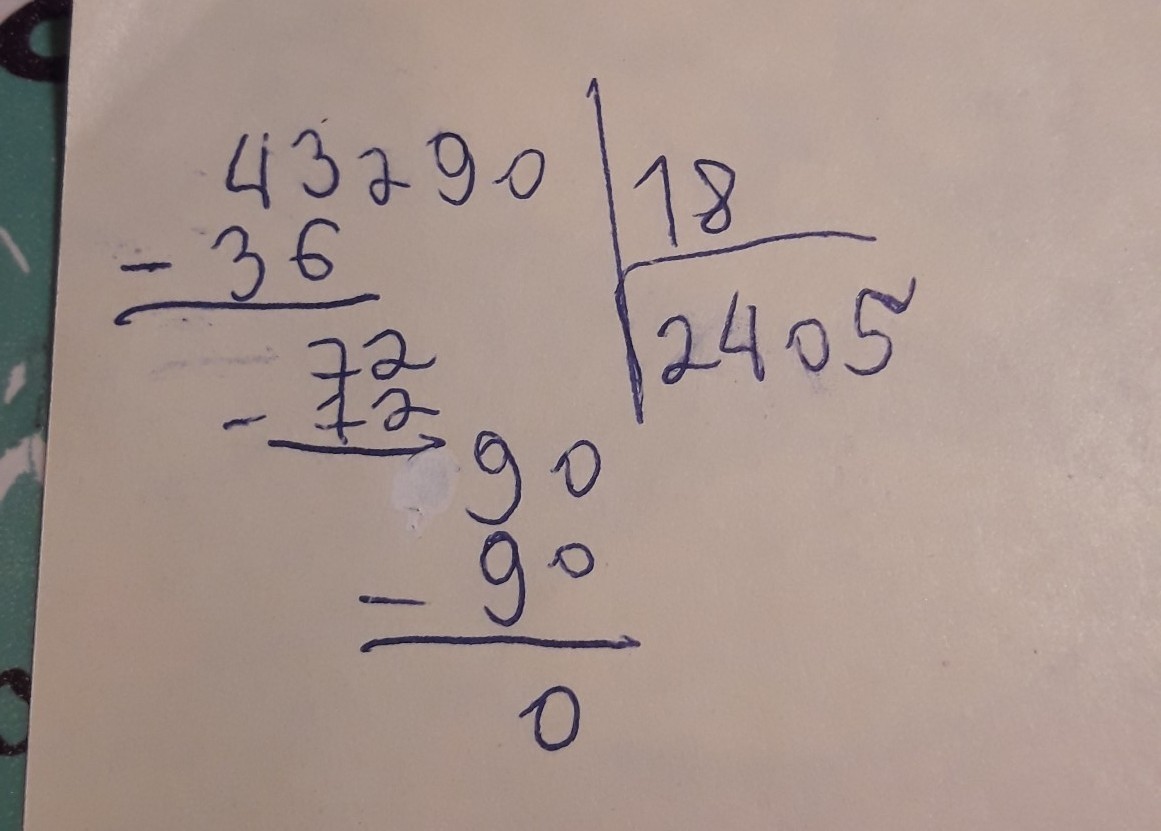 43290 18
- 36
2405
72
- 72
90
- 90
0